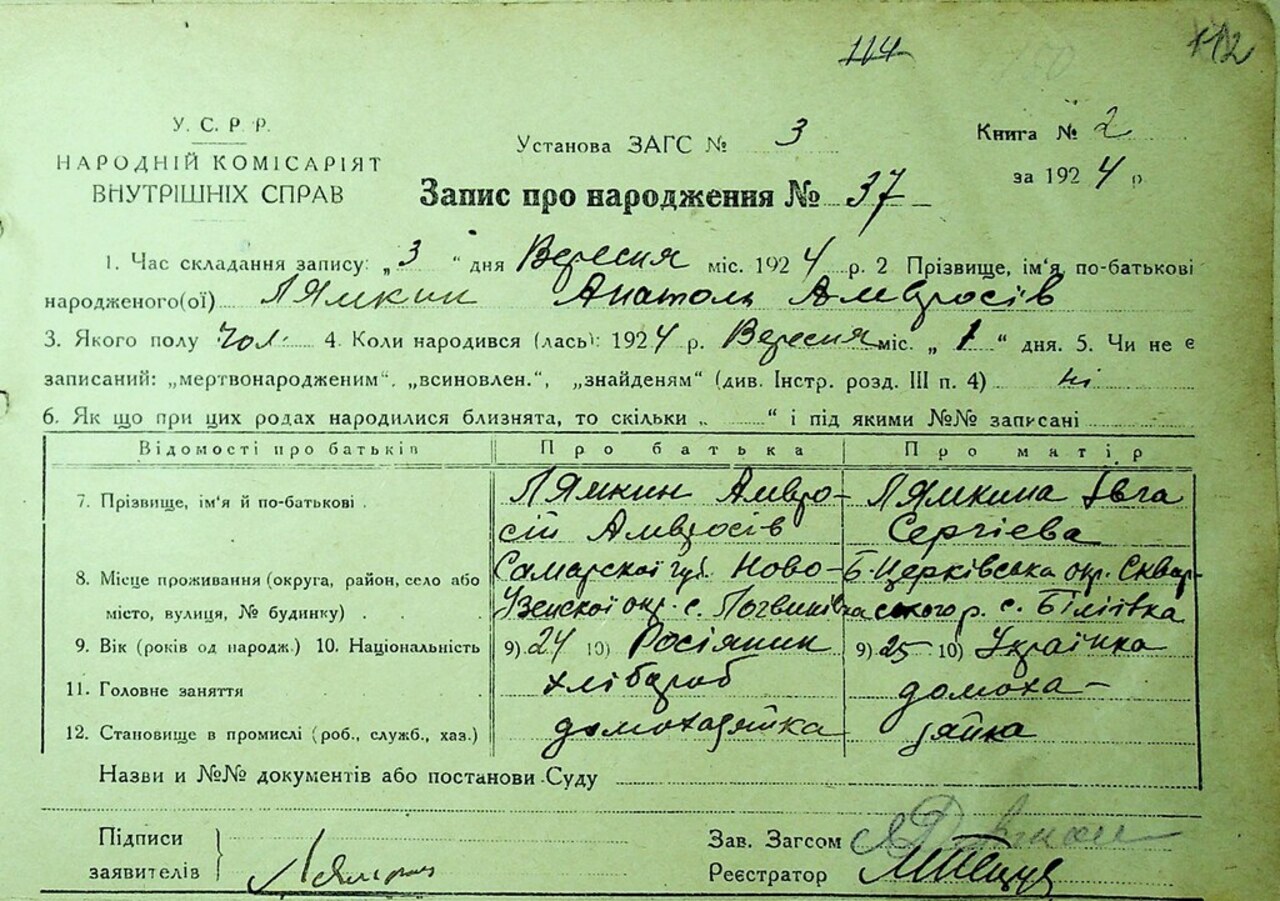 114 112
У. С. Р. Р.
НАРОДНІЙ КОМІСАРІЯТ
ВНУТРІШНІХ СПРАВ
Установа ЗАГС № 3
Книга № 2
за 1924 р
Запис про народження № 37
1. Час складання запису: „3“ дня Вересня міс. 1924 р. 2 Прізвище, ім'я, по-батькові
народженого(ої) Лямкин Анатоль Амвросів
3. Якого полу чол. 4. Коли народився (лась): 1924 р. Вересня міс. „1“ дня. 5. Чи не є
записаний: „мертвонародженим“, „всиновлен.“, „знайденям“ (див. Інстр. розд. III п. 4) ні
6. Як що при цих родах народилися близнята, то скільки „ “ і під якими №№ записані
Відомості про батьків Про батька Про матір
7. Прізвище, ім'я й по-батькові . Лямкин Амвро- Лямкина Івга
сій Амвросів Сергієва
8. Місце проживання (округа, район, село або Самарскої губ. Ново- Б-Церківська окр. Сквир-
місто, вулиця, № будинку) . . Узенскої окр. с. ського р. с. Біліївка
9. Вік (років од народж.) 10. Національність 9) 24 10) Росіянин 9) 25 10) Українка
11. Головне заняття хлібороб домоха-
12. Становище в промислі (роб., служб., хаз.) домохазяйка зяйка
Назви и №№ документів або постанови Суду
Підписи
заявителів } Лямкин
Зав. Загсом
Реєстратор